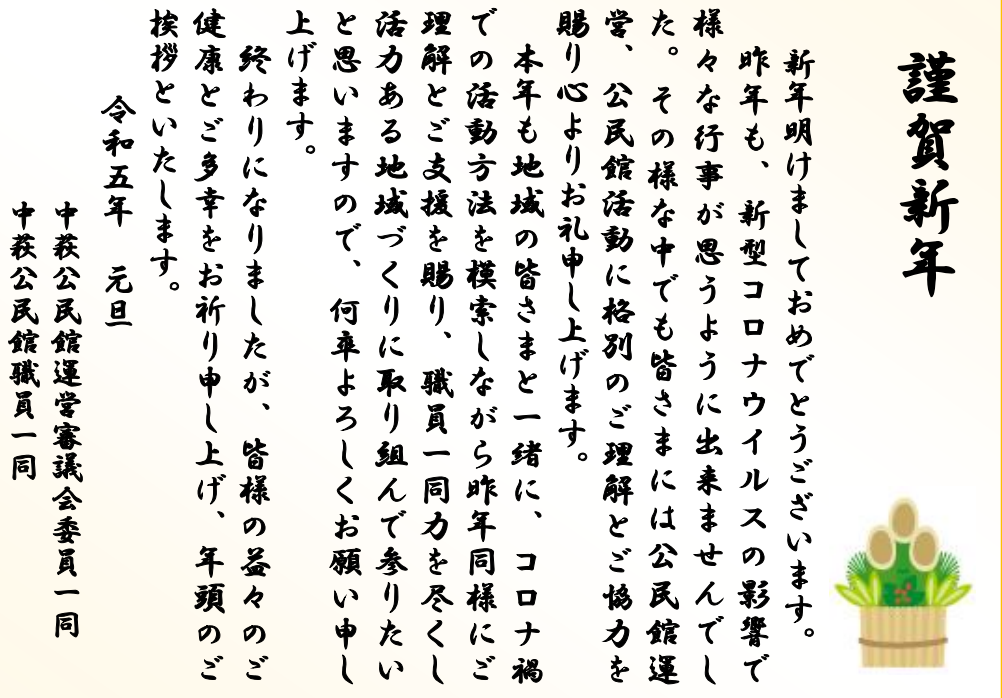 謹賀新年
新年明けましておめでとうございます。
昨年も、新型コロナウイルスの影響で
様々な行事が思うように出来ませんでし
た。その様な中でも皆さまには公民館運
営、公民館活動に格別のご理解とご協力を
賜り心よりお礼申し上げます。
本年も地域の皆さまと一緒に、コロナ禍
での活動方法を模索しながら昨年同様にご
理解とご支援を賜り、職員一同力を尽くし
活力ある地域づくりに取り組んで参りたい
と思いますので、何卒よろしくお願い申し
上げます。
終わりになりましたが、皆様の益々のご
健康とご多幸をお祈り申し上げ、年頭のご
挨拶といたします。
令和五年　元旦
中萩公民館運営審議会委員一同
中萩公民館職員一同